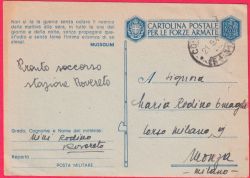 Non si fa la guerra senza odiare il nemico
dalla mattina alla sera, in tutte le ore del
giorno e della notte, senza propagare quest'
odio e senza farne l'intima essenza di se
stessi.
MUSSOLINI
Pronto soccorso
stazione Rovereto
Grado, Cognome e Nome del mittente:
Mimì Rodino
Rovereto
Reparto
POSTA MILITARE
CARTOLINA POSTALE
PER LE FORZE ARMATE
A Signora
Maria Rodino
corso Milano
Monza
Milano